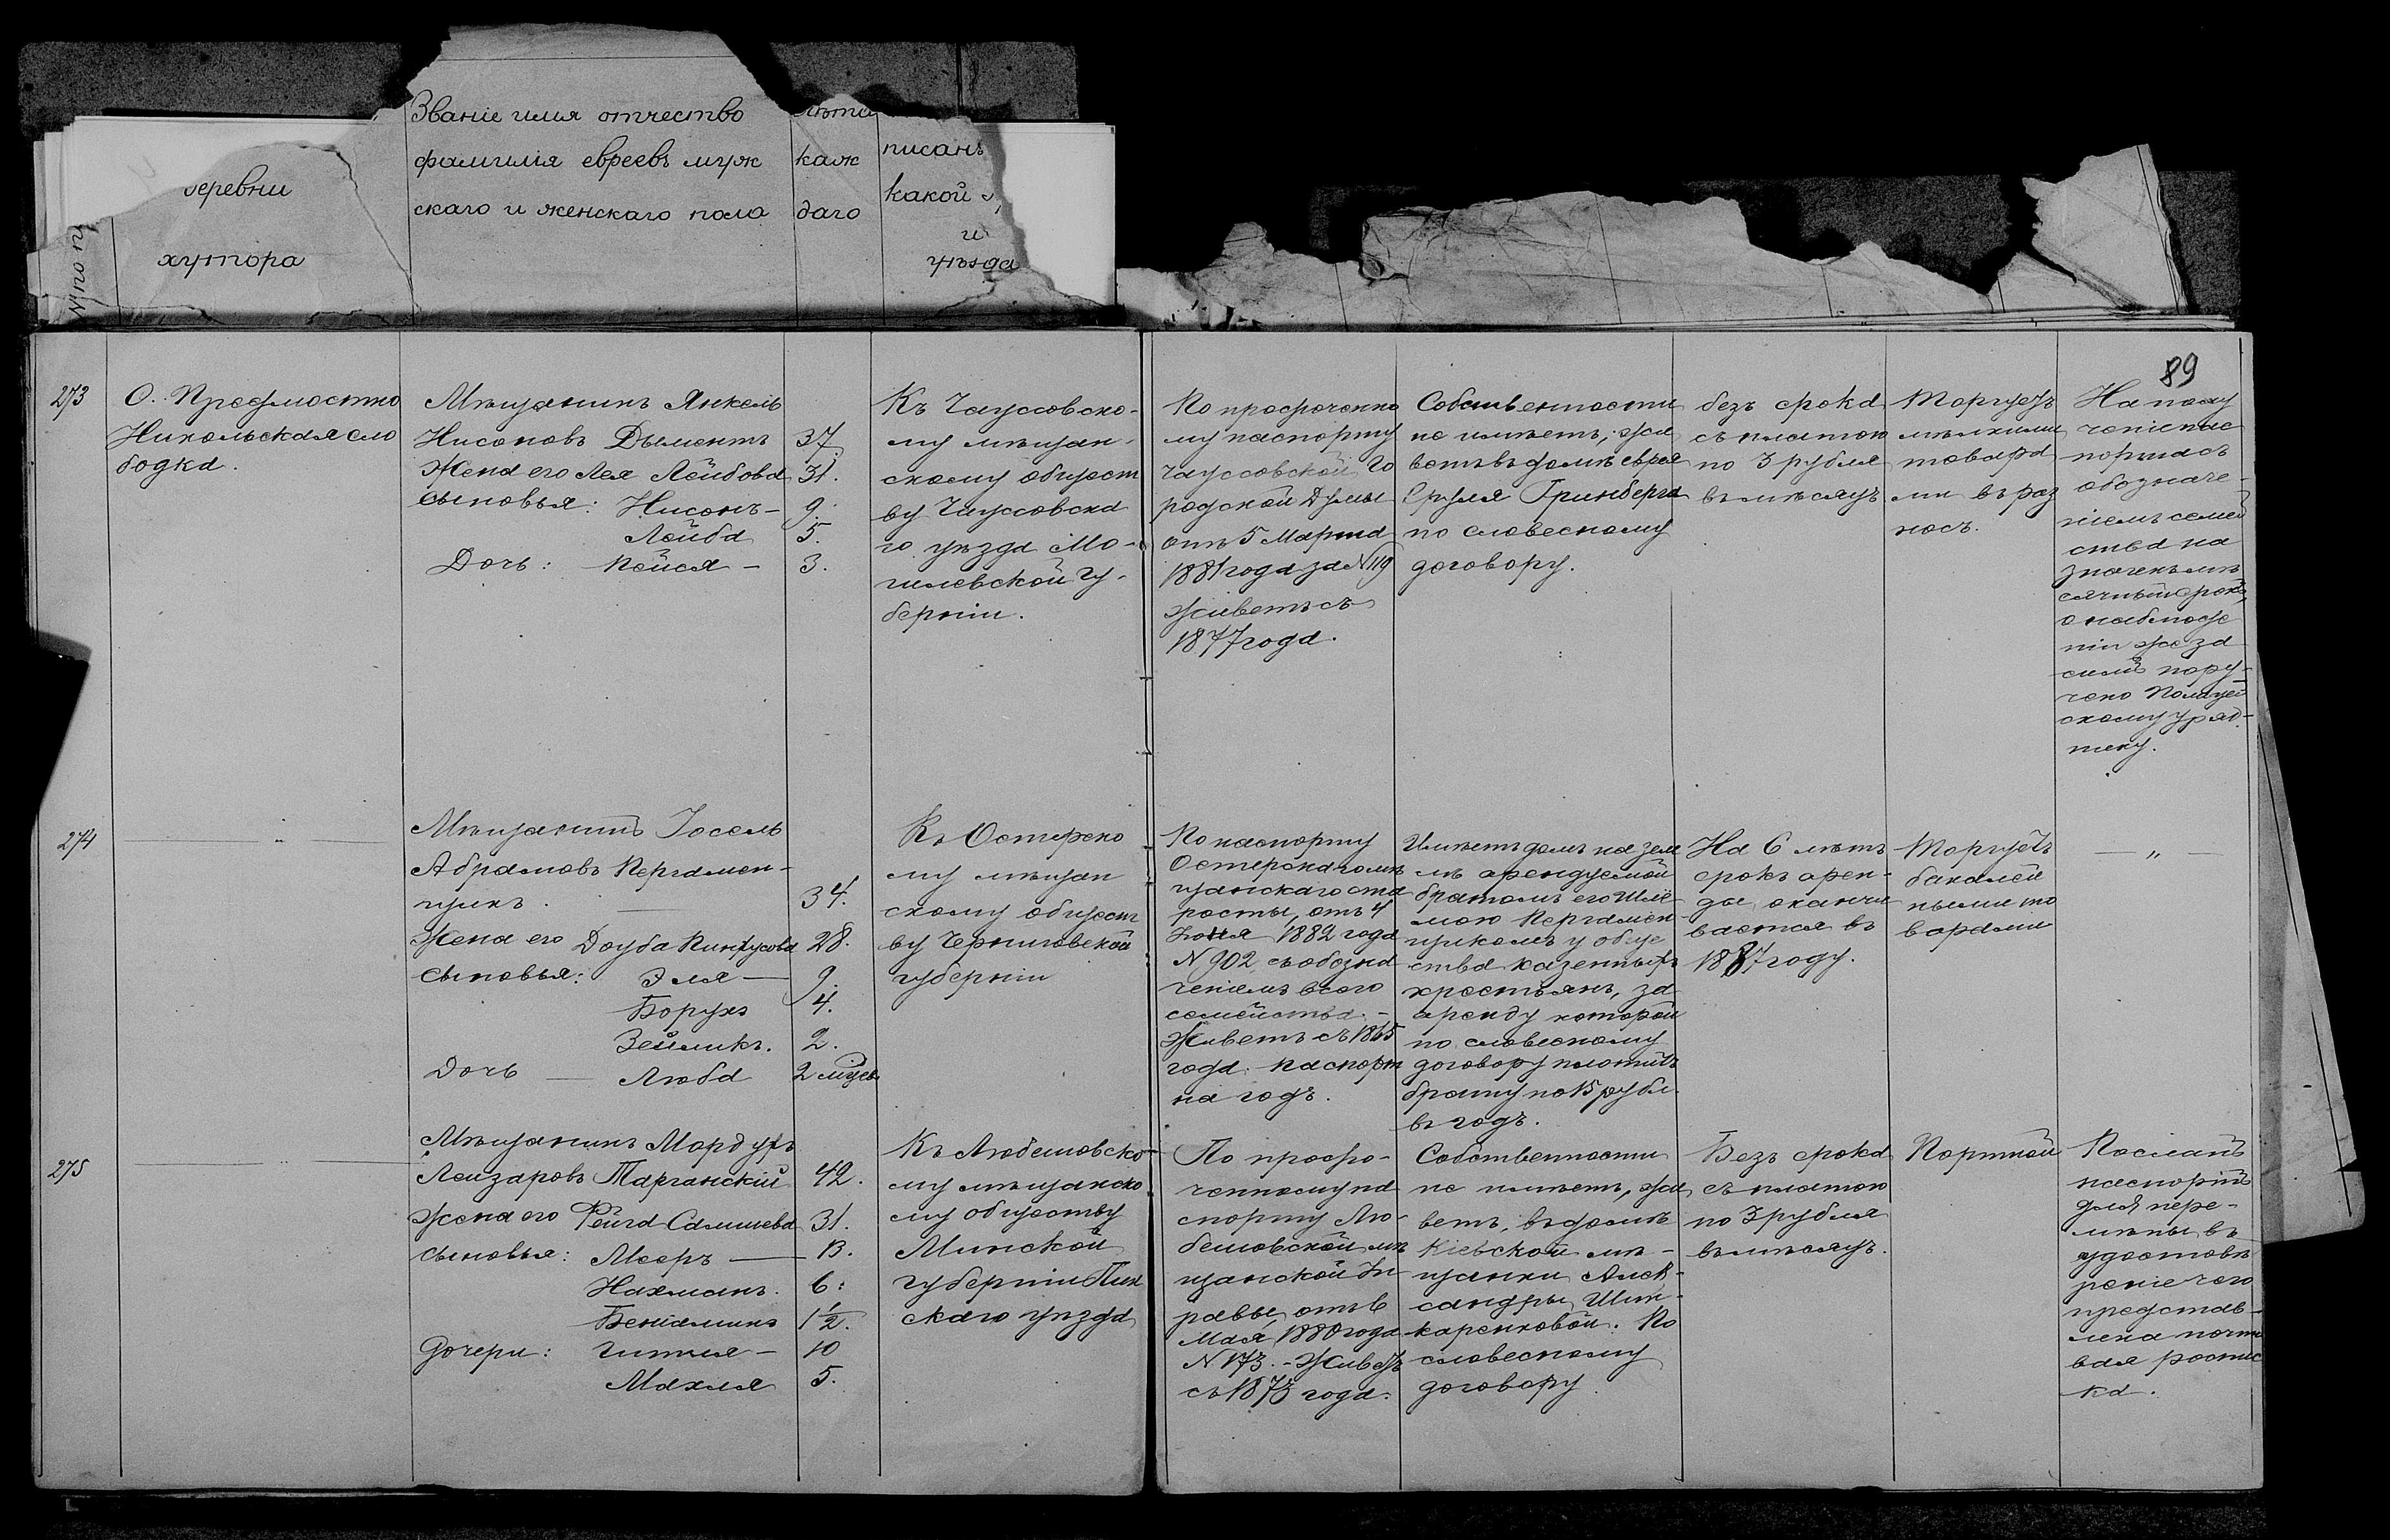 Званіе имя отчество
фамилія евреевъ муж
скаго и женскаго пола
лѣта
каж
даго
писанъ
какой
и
уѣзда
деревни
хутора
№ по п
89
273
С. Предмостно
Никольская сло
бодка.
Мѣщанинъ Янкель
Нисоновъ Дыментъ 37
Жена его Лея Лейбова 31.
Сыновья: Нисонъ – 9.
Лейба 5.
Дочь: Пейся – 3.
Къ Чауссовско-
му мѣщан-
скому общест
ву Чауссовска
го уѣзда Мо-
гилевской гу-
берніи.
По просроченно
му паспорту
Чауссовской Го
родской Думы
отъ 5 Марта
1881 года за № 119
живетъ съ
1877 года.
Собственности
не имѣетъ; жи
ветъ въ домѣ еврея
Сруля Гринберга
по словесному
договору.
безъ срока
съ платою
по 3 рубля
въ мѣсяцъ
Торгуетъ
мѣлкими
товара
ми въ раз
носъ.
На полу
ченіе пас
порта съ
обозначе-
ніемъ семей
ства на
значенъ мѣ
сячный срокъ,
о наблюде
ніи же за
симъ пору-
чено Полицей
скому уряд-
нику.
274
— " —
Мѣщанинъ Іосель
Абрамовъ Пергамен-
щикъ. 34.
Жена его Доуба Пинхусова 28.
Сыновья: Эля — 9.
Борухъ 4.
Зейликъ. 2.
Дочь — Люба 2 мѣсяц
Къ Остерско
му мѣщан
скому общест
ву Черниговской
губерніи
По паспорту
Остерскаго мѣ
щанскаго ста
росты, отъ 4
Іюля 1882 года
№ 902, съ обозна
ченіемъ всего
семейства. –
Живетъ съ 1865
года. паспорт
на годъ.
Имѣетъ домъ на зем
лѣ арендуемой
братомъ его Шле
мою Пергамен
щикомъ у обще
ства казенныхъ
крестьянъ, за
аренду которой
по словесному
договору платитъ
брату по 15 рубл.
въ годъ.
На 6 лѣтъ
срокъ арен-
ды оканчи
вается въ
1887 году.
Торгуетъ
бакалей
ными то
варами
— " —
275
— " —
Мѣщанинъ Мордухъ
Лейзаровъ Тарганскій 42.
жена его Фейга Салишева 31.
Сыновья: Мееръ — 13.
Нахманъ. 6.
Беніаминъ 1½.
Дочери: Гитля – 10
Махля 5.
Къ Любешовско-
му мѣщанско
му обществу
Минской
губерніи Пин
скаго уѣзда
По просро-
ченному па
спорту Лю-
бешовской мѣ
щанской Уп
равы, отъ 6
Мая 1880 года
№ 173. – Живетъ
съ 1873 года.
Собственности
не имѣетъ, жи
ветъ въ домѣ
Кіевской мѣ-
щанки Алек-
сандры Шин-
каренковой. По
словесному
договору.
Безъ срока
съ платою
по 3 рубля
въ мѣсяцъ.
Портной
Посланъ
паспортъ
для пере-
мѣны въ
удостовѣ
реніе чего
представ-
лена почто
вая роспис
ка.